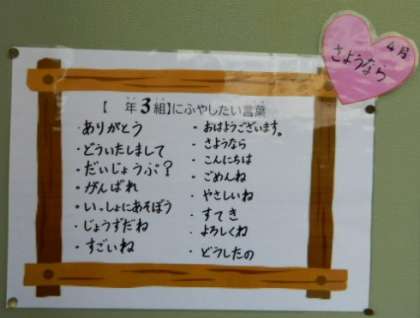 4月
さようなら
【 年3組】にふやしたい言葉
・ありがとう
・どういたしまして
・だいじょうぶ?
・がんばれ
・いっしょにあそぼう
・じょうずだね
・すごいね
・おはようございます。
・さようなら
・こんにちは
・ごめんね
・やさしいね
・すてき
・よろしくね
・どうしたの